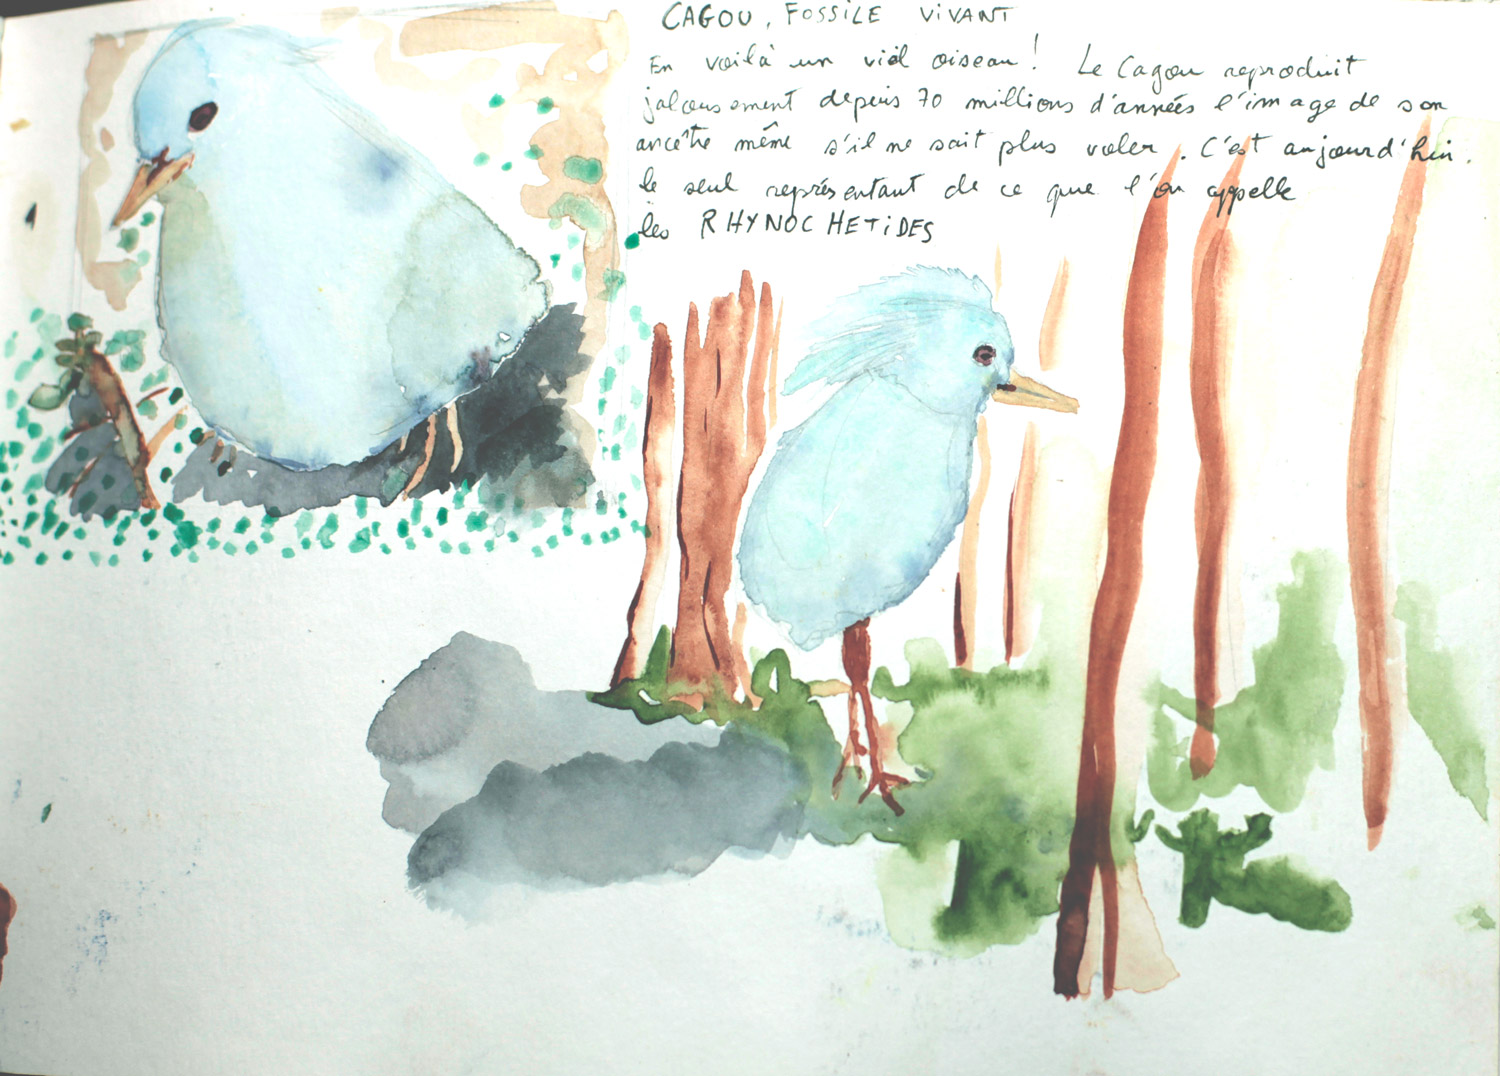 CAGOU, FOSSILE VIVANT
En voilà un vieil oiseau ! Le Cagou reproduit
jalousement depuis 70 millions d'années l'image de son
ancêtre même s'il ne sait plus voler. C'est aujourd'hui
le seul représentant de ce que l'on appelle
les RHYNOCHETIDES